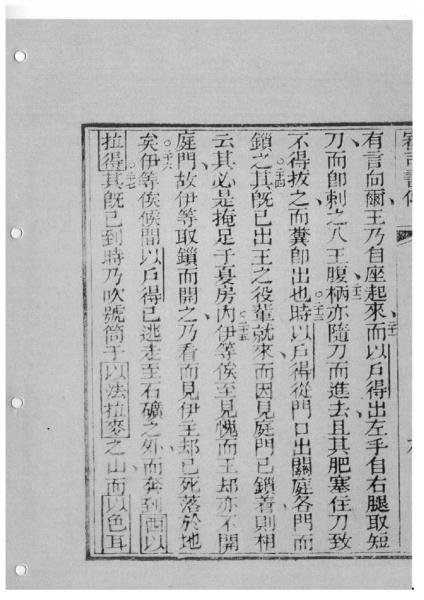 審司書傳
六
有言向爾王乃自座起來而以戶得出左手自右腿取短
二十一
刀而即刺之入王腹柄亦隨刀而進去且其肥塞住刀致
二十二
不得拔之而糞即出也時以戶得從門口出關庭各門而
二十三
鎖之其既已出王之役輩就來而因見庭門已鎖着則相
二十四
云其必是掩足于夏房內伊等俟至見愧而王却亦不開
二十五
庭門故伊等取鎖而開之乃看而見伊王却已死落於地
矣伊等俟候間以戶得已逃走至石礦之外而奔到西以
二十六
拉得其既已到時乃吹號筒于以法拉麥之山而以色耳
二十七